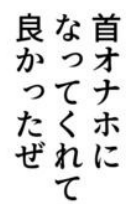 首オナホに
なってくれて
良かったぜ